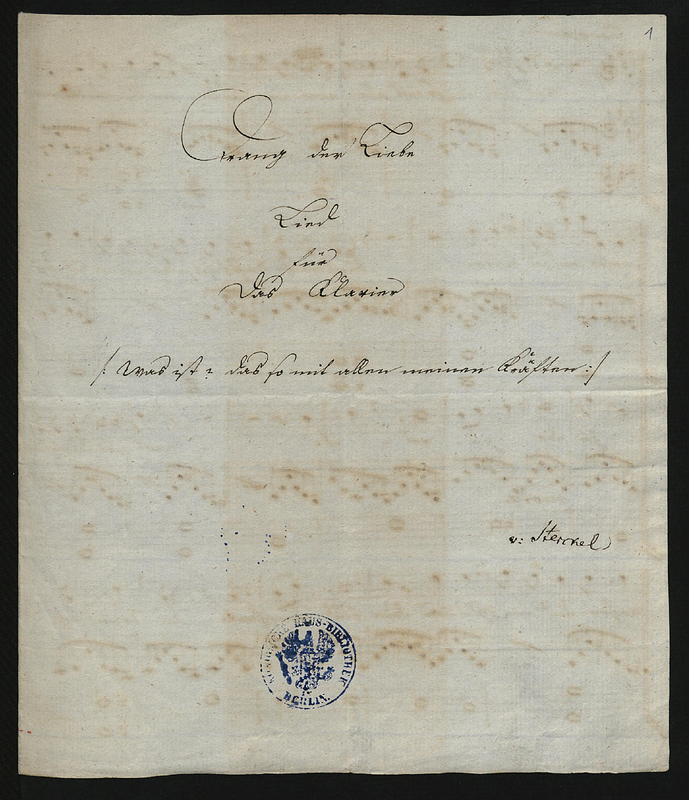 1
Drang der Liebe
Lied
für
Das Klavier
/: Was ist's das so mit allen meinen Kräften :/
v: Sterckel
KÖNIGLICHE HAUS-BIBLIOTHEK
BERLIN.